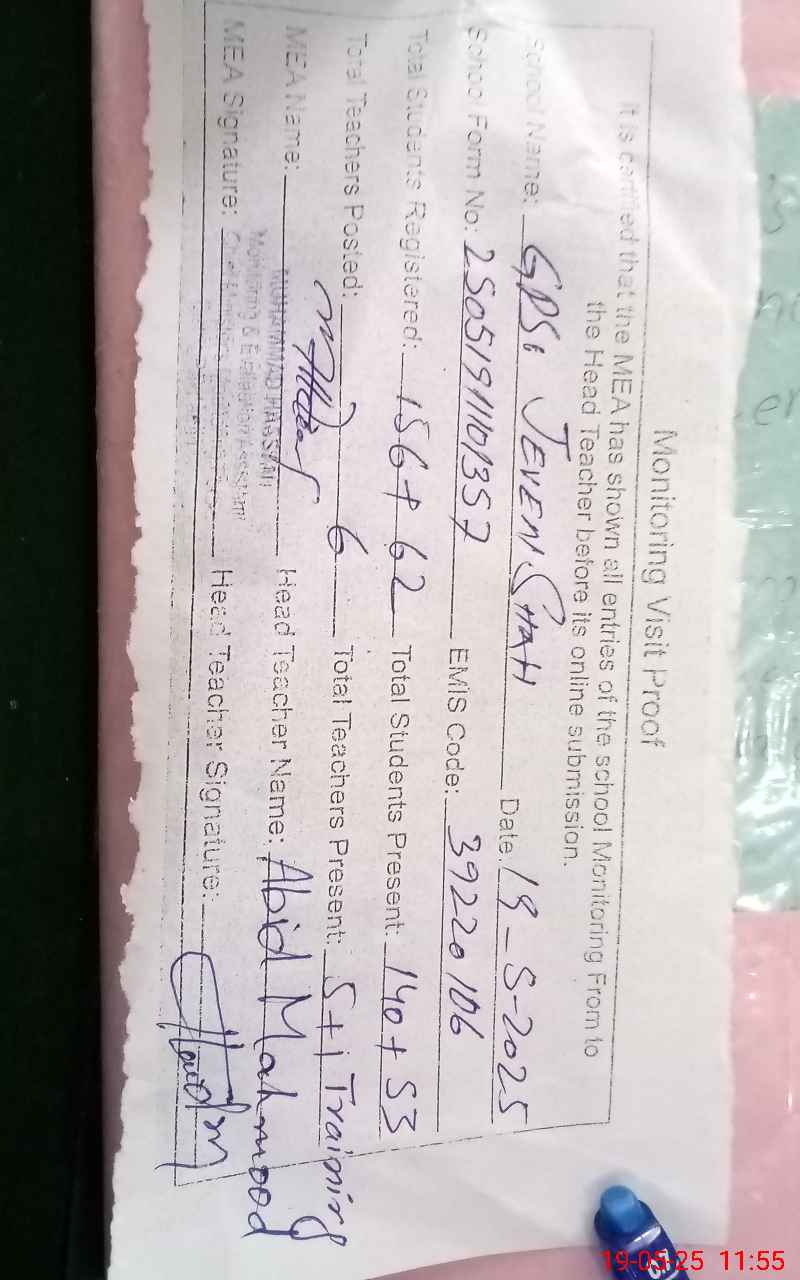 Monitoring Visit Proof
It is certified that the MEA has shown all entries of the school Monitoring From to
the Head Teacher before its online submission.
School Name: GPS: JEVEN SHAH Date: 19-5-2025
School Form No: 2505191101357 EMIS Code: 39220106
Total Students Registered: 156+62 Total Students Present: 140+53
Total Teachers Posted: 6 Total Teachers Present: 5+1 Training
MEA Name: Head Teacher Name: Abid Mahmood
MUHAMMAD HASSAN
Monitoring & Evaluation Assistant
MEA Signature: Head Teacher Signature:
19-05-25 11:55